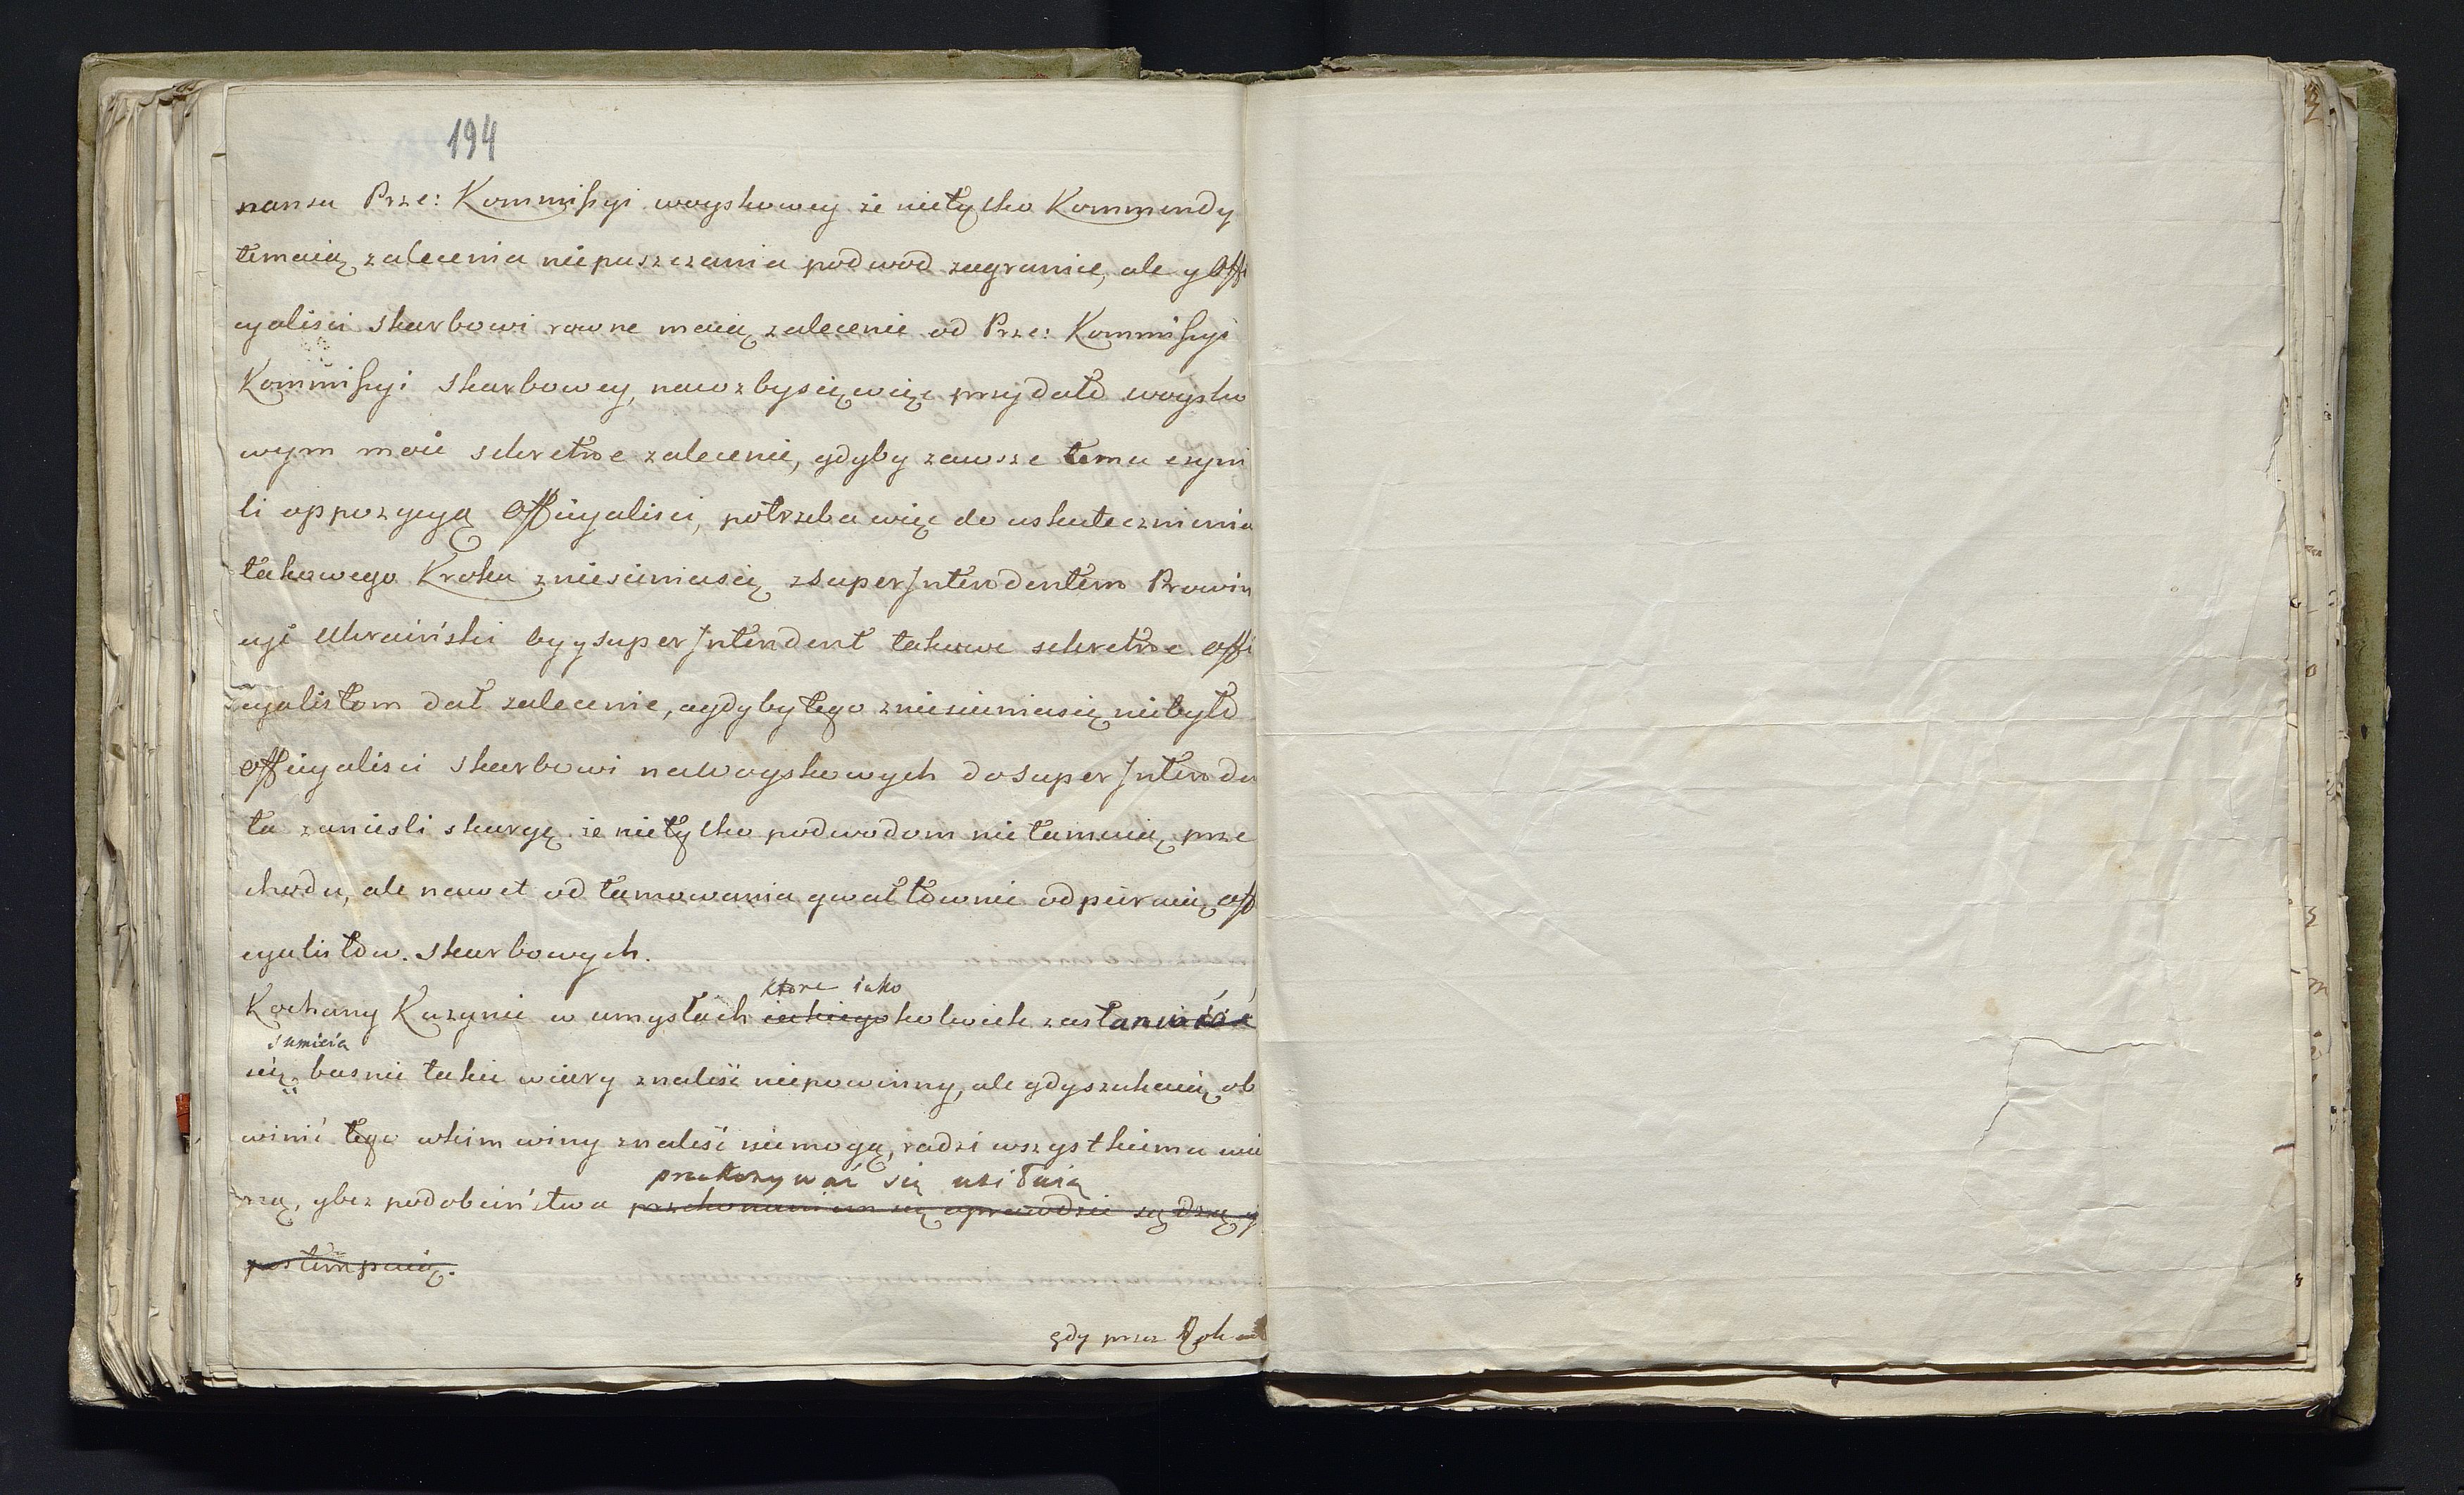 194
nansu Prze: Kommissyi woyskowey że nietylko Kommendy
temaią zalecenia niepuszczania podwod zagranice, ale y Offi
cyalisci skarbowi rowne maią zalecenie od Prze: Kommissyi
Kommissyi Skarbowey, nawzbysięwięc przydało woysko
wym moie sekretne zalecenie, gdyby zawsze temu czyni
li oppozycyą Officyalisci, potrzeba więc do uskutecznienia
takowego Kroku zniesieniasię zsuperJntendentem Prowin
cyi Ukraiński by y superJntendent takowe sekretne offi
cyalistom dał zalecenie, agdyby tego zniesieniasię niebyło
officyalisci skarbowi nawoyskowych dosuperJntenden
ta zaniesli skargę że nietylko podwodom nietamuią prze
chodu, ale nawet od tamowania gwałtownie odpieraią offi
cyalistow skarbowych.
ktore iako
Kochany Kuzynie w umysłach iakiegokolwiek zastanowić
sumicia
się basnie takie wiary znaleść niepowinny, ale gdyszukaią ob
winić tego wkim winy znaleść niemogą, radzi wszystkiemu wie
przekonywać się usiłuią
rzą, ybez podobieństwa przekonaniem się oprawdzie sądzą y
postempuią.
gdy przez